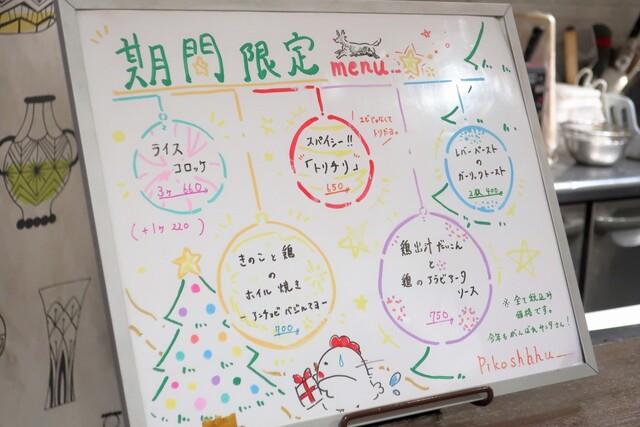 期間限定
menu...
ライス
コロッケ
3ヶ 660
(+1ヶ 220)
スパイシー!!
「トリチリ」
650
エビじゃなくて
トリだよ。
レバーペースト
の
ガーリックトースト
2枚 400
きのこと鶏
の
ホイル焼き
-アンチョビバジルマヨー
700
鶏出汁だいこん
と
鶏のアラビアータ
ソース
750
※全て税込み
価格です。
今年もがんばれサンタさん!
Pikoshhhu